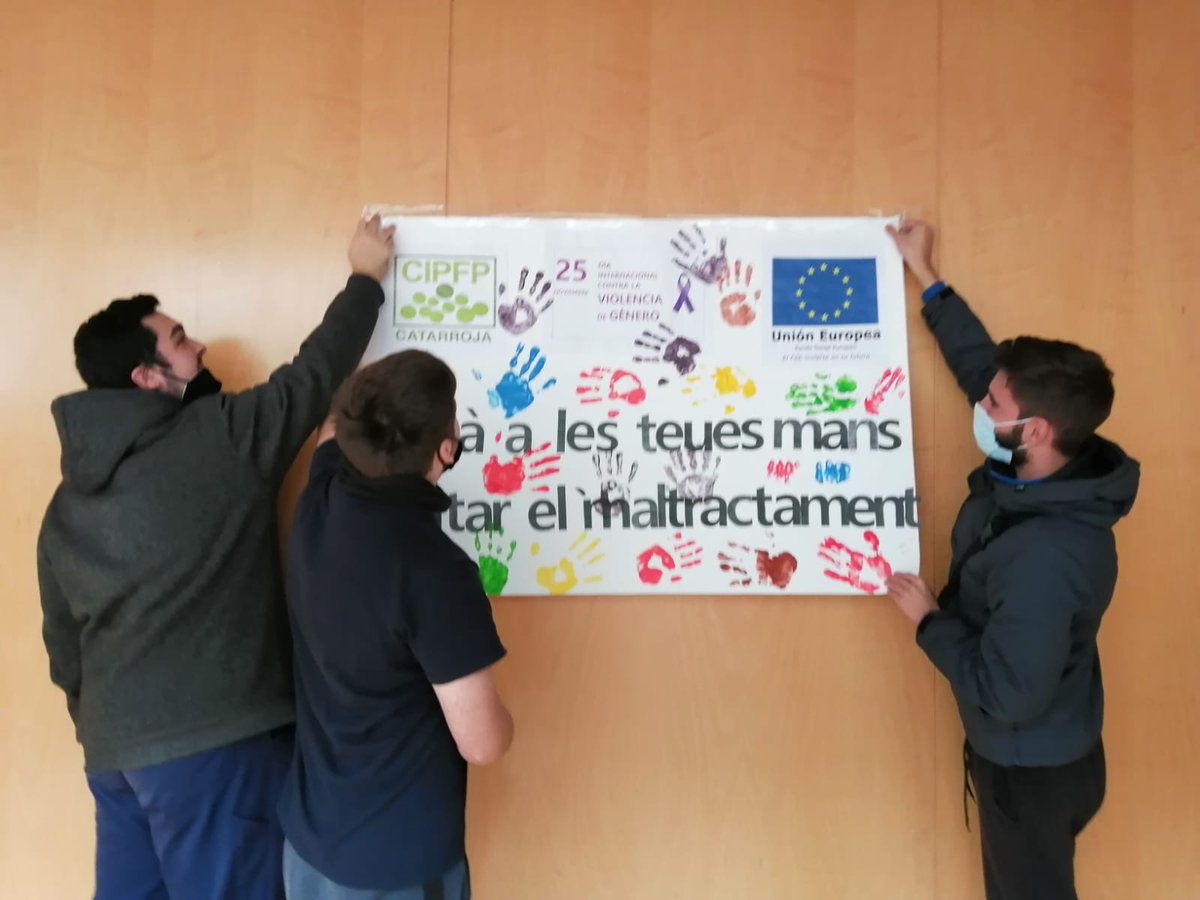 CIPFP
CATARROJA
25
NOVIEMBRE
DÍA
INTERNACIONAL
CONTRA LA
VIOLENCIA
DE GÉNERO
Unión Europea
Fondo Social Europeo
El FSE invierte en tu futuro
à a les teues mans
tar el maltractament